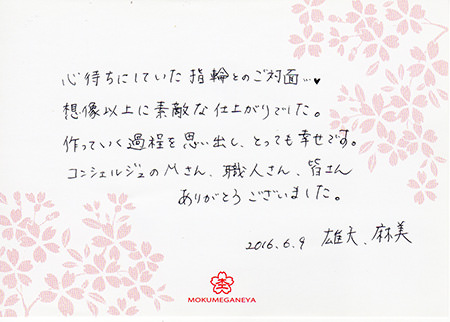 心待ちにしていた指輪とのご対面…♥
想像以上に素敵な仕上がりでした。
作っていく過程を思い出し、とっても幸せです。
コンシェルジュのMさん、職人さん、皆さん
ありがとうございました。
2016.6.9 雄大、麻美
MOKUMEGANEYA